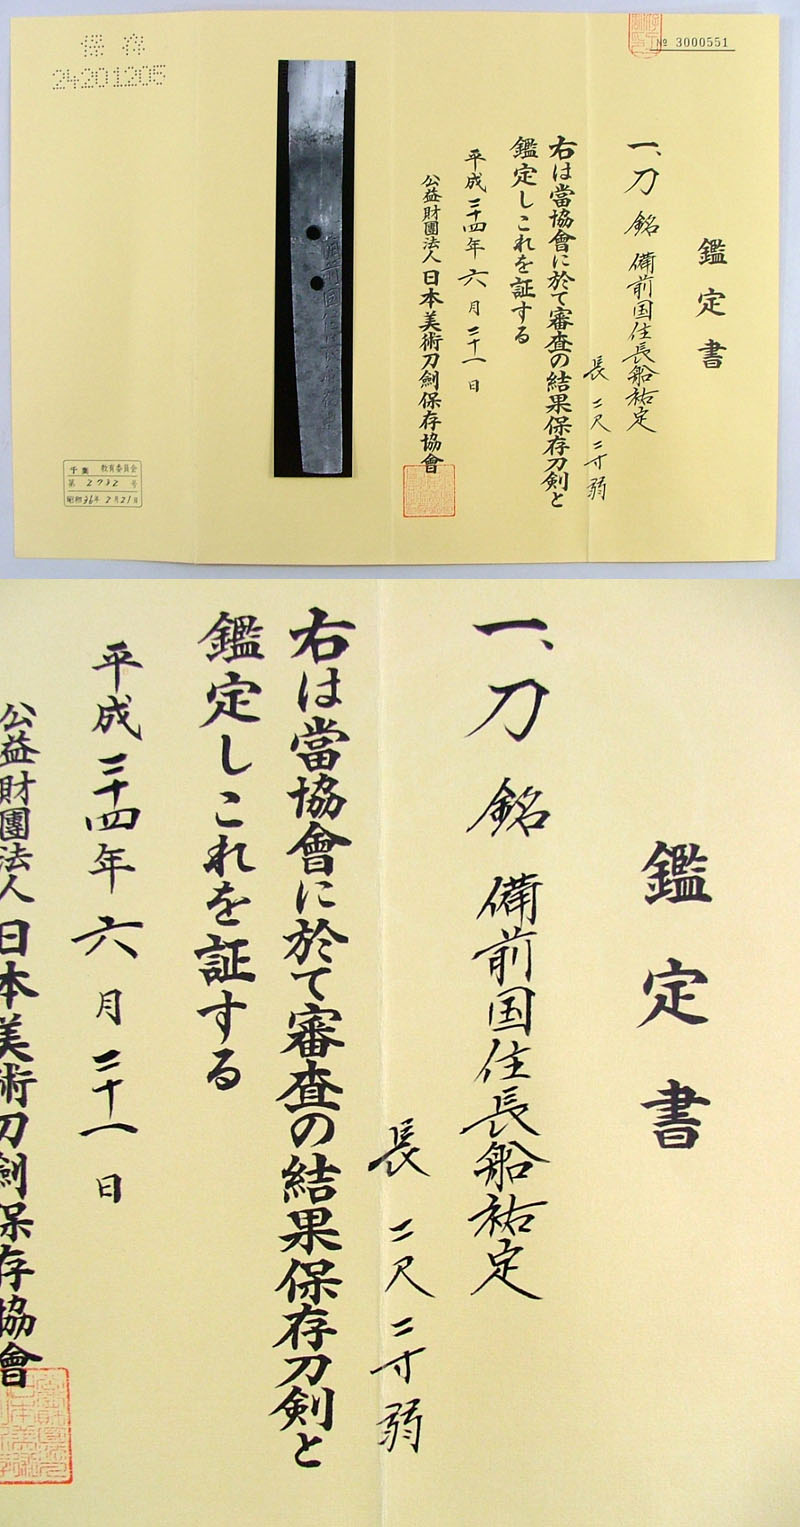 № 3000551
鑑定書
一、刀 銘 備前国住長船祐定
長 二尺二寸弱
右は當協會に於て審査の結果保存刀剣と
鑑定しこれを証する
平成二十四年六月二十一日
公益財團法人 日本美術刀剣保存協會
保存
24201205
千葉 教育委員会
第 2732 号
昭和36年2月21日
鑑定書
一、刀 銘 備前国住長船祐定
長 二尺二寸弱
右は當協會に於て審査の結果保存刀剣と
鑑定しこれを証する
平成二十四年六月二十一日
公益財團法人 日本美術刀剣保存協會